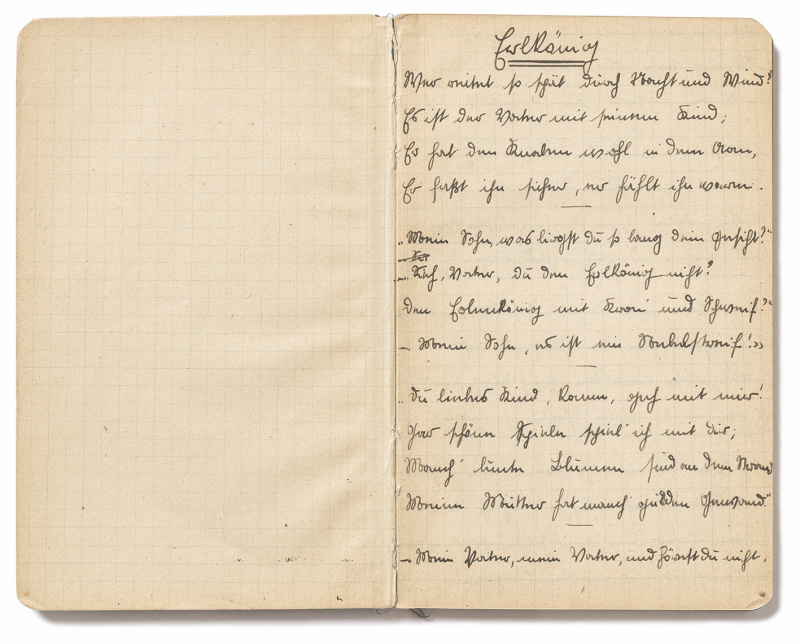 Erlkönig
Wer reitet so spät durch Nacht und Wind?
Es ist der Vater mit seinem Kind;
Er hat den Knaben wohl in dem Arm,
Er faßt ihn sicher, er hält ihn warm.
„Mein Sohn, was birgst du so bang dein Gesicht?“
– Sieh, Vater, du den Erlkönig nicht?
Den Erlenkönig mit Kron' und Schweif?“
– Mein Sohn, es ist ein Nebelstreif!»
„Du liebes Kind, komm, geh mit mir!
Gar schöne Spiele spiel' ich mit dir;
Manch' bunte Blumen sind an dem Strand
Meine Mutter hat manch' gülden Gewand.“
– Mein Vater, mein Vater, und hörest du nicht,